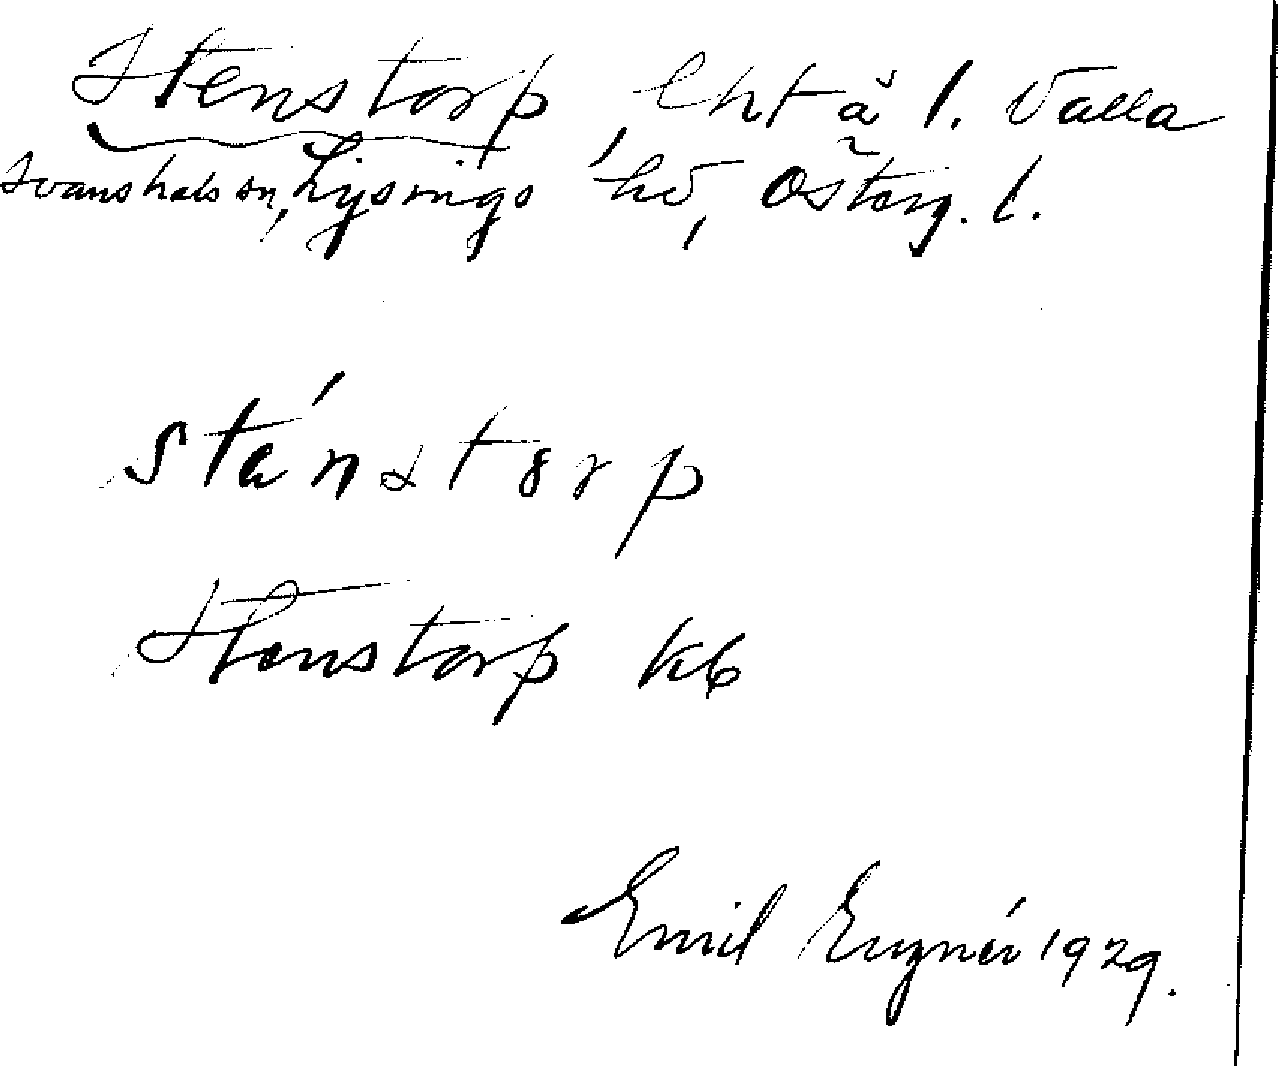 Stenstorp, lht å l. Valla
Svanshals sn, Lysings hd, Österg. l.
stánstorp
Stenstorp kb
Emil 1929.